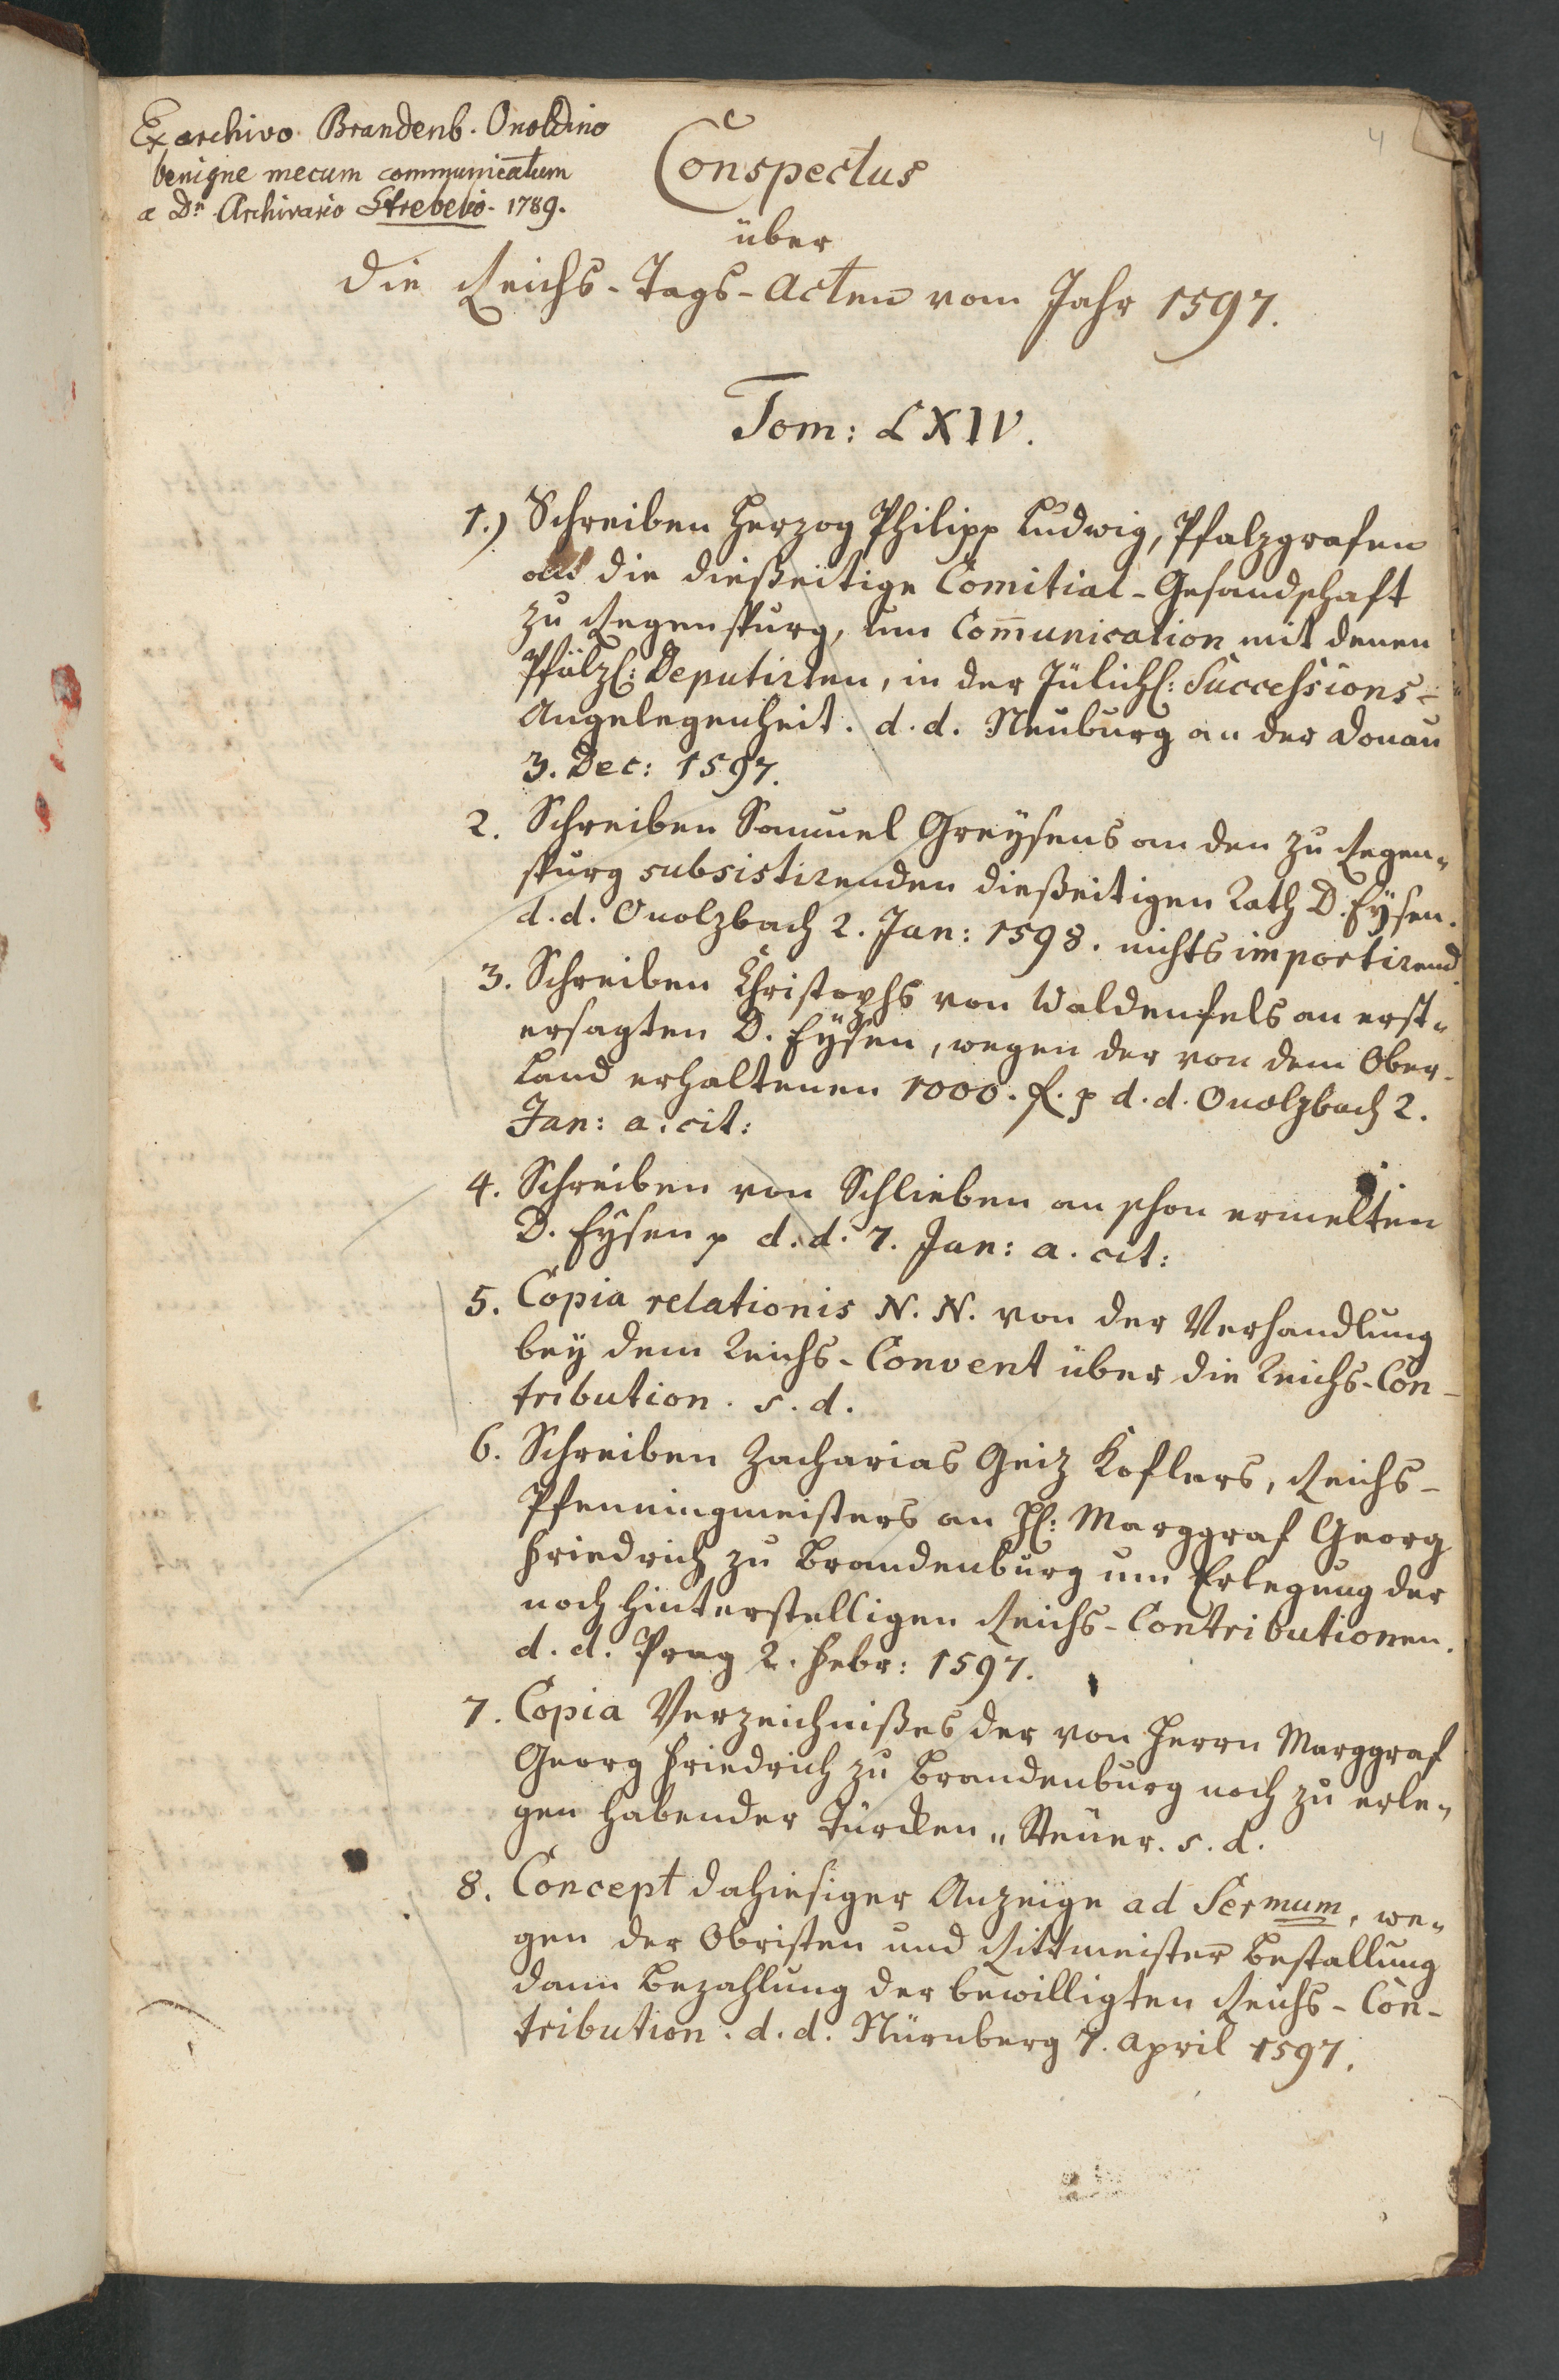 Ex archivo Brandenb. Onoldino
benigne mecum communicatum
a Dn. Archivario Strebelio. 1789.
4
Conspectus
über
die Reichs-Tags-Acten vom Jahr 1597.
Tom: LXIV.
1.) Schreiben Herzog Philipp Ludwig, Pfalzgrafen
an die dießeitige Comitial-Gesandschaft
zu Regenspurg, um Com̅unication mit denen
Pfälzl: Deputirten, in der Jülichl: Successions-
Angelegenheit. d. d. Neuburg an der Donau
3. Dec: 1597.
2. Schreiben Samuel Greysens an den zu Regen„
spurg subsistirenden dießeitigen Rath D. Eysen.
d. d. Onolzbach 2. Jan: 1598. nichts importirend
3. Schreiben Christophs von Waldenfels an erst„
ersagten D. Eysen, wegen der von dem Ober-
Land erhaltenen 1000. fl. p d. d. Onolzbach 2.
Jan: a. cit:
4. Schreiben von Schlieben an schon ermelten
D. Eysen p d. d. 7. Jan: a. cit:
5. Copia relationis N. N. von der Verhandlung
bey dem Reichs-Convent über die Reichs-Con-
tribution. s. d.
6. Schreiben Zacharias Geiz Koflers, Reichs-
Pfenningmeisters an H: Marggraf Georg
Friedrich zu Brandenburg um Erlegung der
noch hinterstelligen Reichs-Contributionen.
d. d. Prag 2. Febr: 1597.
7. Copia Verzeichnißes der von Herrn Marggraf
Georg Friedrich zu Brandenburg noch zu erle„
gen habender Türcken„Steuer. s. d.
8. Concept dahiesiger Anzeige ad Sermum, we„
gen der Obristen und Rittmeister Bestallung
dann Bezahlung der bewilligten Reichs-Con-
tribution. d. d. Nürnberg 7. April 1597.